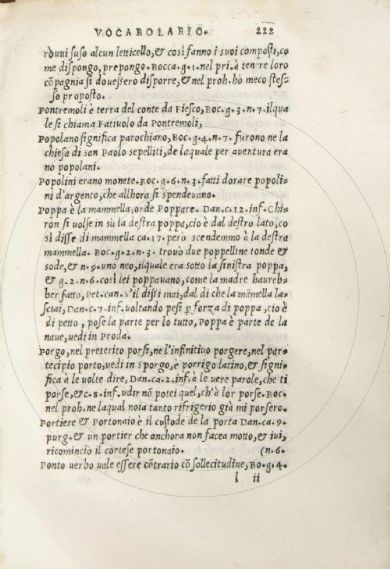 VOCABOLARIO. 222
rōvvi suso alcun letticello, & così fanno i suoi composti, co
me dispongo, prepongo. Bocca.g.1. nel pri. à tener loro
cōpagnia si dovessero disporre, & nel proh. hò meco stes-
so proposto.
Pontremoli è terra del conte da Fiesco, Boc.g.3.n.7. ilqua
le si chiama Fattivolo da Pontremoli,
Popolano significa parochiano, Boc.g.4.n.7. furono ne la
chiesa di san Paolo sepelliti, de laquale per aventura era
no popolani.
Popolini erano monete. Boc.g.6.n.3. fatti dorare popoli-
ni d'argento, che allhora si spendevano.
Poppa è la mammella, onde Poppare. Dan.c.12.inf. Chi-
ron si volse in sù la destra poppa, cio è dal destro lato, co
sì disse di mammella ca.17. però scendemmo à la destra
mammella. Boc.g.2.n.3. trovò due poppelline tonde &
sode, & n.9. uno neo, ilquale era sotto la sinistra poppa,
& g.2.n.6. così lei poppavano, come la madre haureb-
ber fatto, Pet.can. s'il dissi mai, dal dì che la māmella la-
sciai, Dan.c.7.inf. voltando pesi ꝑ forza di poppa, cio è
di petto, pose la parte per lo tutto, Poppa è parte de la
nave, vedi in Proda.
Porgo, nel preterito porsi, ne l'infinitivo porgere, nel par-
tecipio porto, vedi in Sporgo, è porrigo latino, & signi-
fica à le volte dire, Dan.ca.2.inf. à le vere parole, che ti
porse, & c.8.inf. udir nō potei quel, ch'à lor porse. Boc.
nel proh. ne laqual noia tanto rifrigerio già mi porsero.
Portiere & Portonaio è il custode de la porta Dan.ca.9.
purg. & un portier che anchora non facea motto, & ivi,
ricomincio il cortese portonaio. (n.6.
Ponto verbo vale essere cōtrario cō sollecitudine, Bo.g.4.
l ii